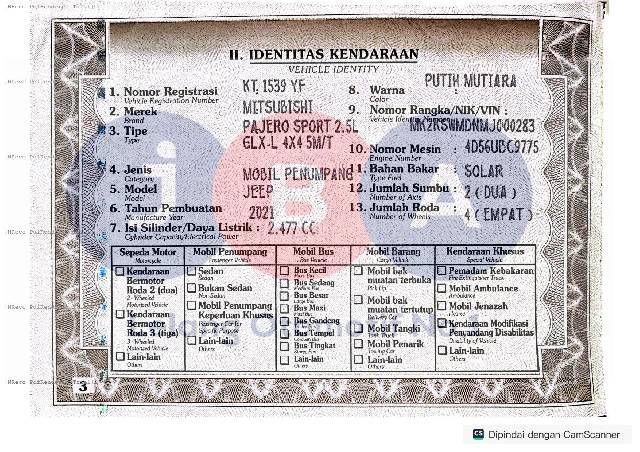 II. IDENTITAS KENDARAAN
VEHICLE IDENTITY
1. Nomor Registrasi KT 1539 YF
Vehicle Registration Number
2. Merek MITSUBISHI
Brand
3. Tipe PAJERO SPORT 2.5L
Type GLX-L 4X4 5M/T
4. Jenis MOBIL PENUMPANG
Category
5. Model JEEP
Model
6. Tahun Pembuatan 2021
Manufacture Year
7. Isi Silinder/Daya Listrik : 2.477 CC
Cylinder Capacity/Electrical Power
8. Warna : PUTIH MUTIARA
Color
9. Nomor Rangka/NIK/VIN :
MK2KSWMDNMJ000283
10. Nomor Mesin : 4D56UBC9775
Engine Number
11. Bahan Bakar : SOLAR
Type Fuel
12. Jumlah Sumbu : 2 ( DUA )
Number of Axis
13. Jumlah Roda : 4 ( EMPAT )
Number of Wheels
Sepeda Motor
Motorcycle
Kendaraan
Bermotor
Roda 2 (dua)
2-Wheeled
Motorized Vehicle
Kendaraan
Bermotor
Roda 3 (tiga)
3-Wheeled
Motorized Vehicle
Lain-lain
Others
Mobil Penumpang
Passenger Vehicle
Sedan
Sedan
Bukan Sedan
Non Sedan
Mobil Penumpang
Keperluan Khusus
Passenger Car for
Specific Purpose
Lain-lain
Others
Mobil Bus
Bus Vehicle
Bus Kecil
Bus Sedang
Bus Besar
Bus Maxi
Bus Gandeng
Bus Tempel
Bus Tingkat
Lain-lain
Others
Mobil Barang
Cargo Vehicle
Mobil bak
muatan terbuka
Pick Up
Mobil bak
muatan tertutup
Delivery Car
Mobil Tangki
Mobil Penarik
Towing Car
Lain-lain
Others
Kendaraan Khusus
Special Vehicle
Pemadam Kebakaran
Mobil Ambulance
Ambulance
Mobil Jenazah
Hearse
Kendaraan Modifikasi
Penyandang Disabilitas
Lain-lain
Others
3
iBA
CS Dipindai dengan CamScanner